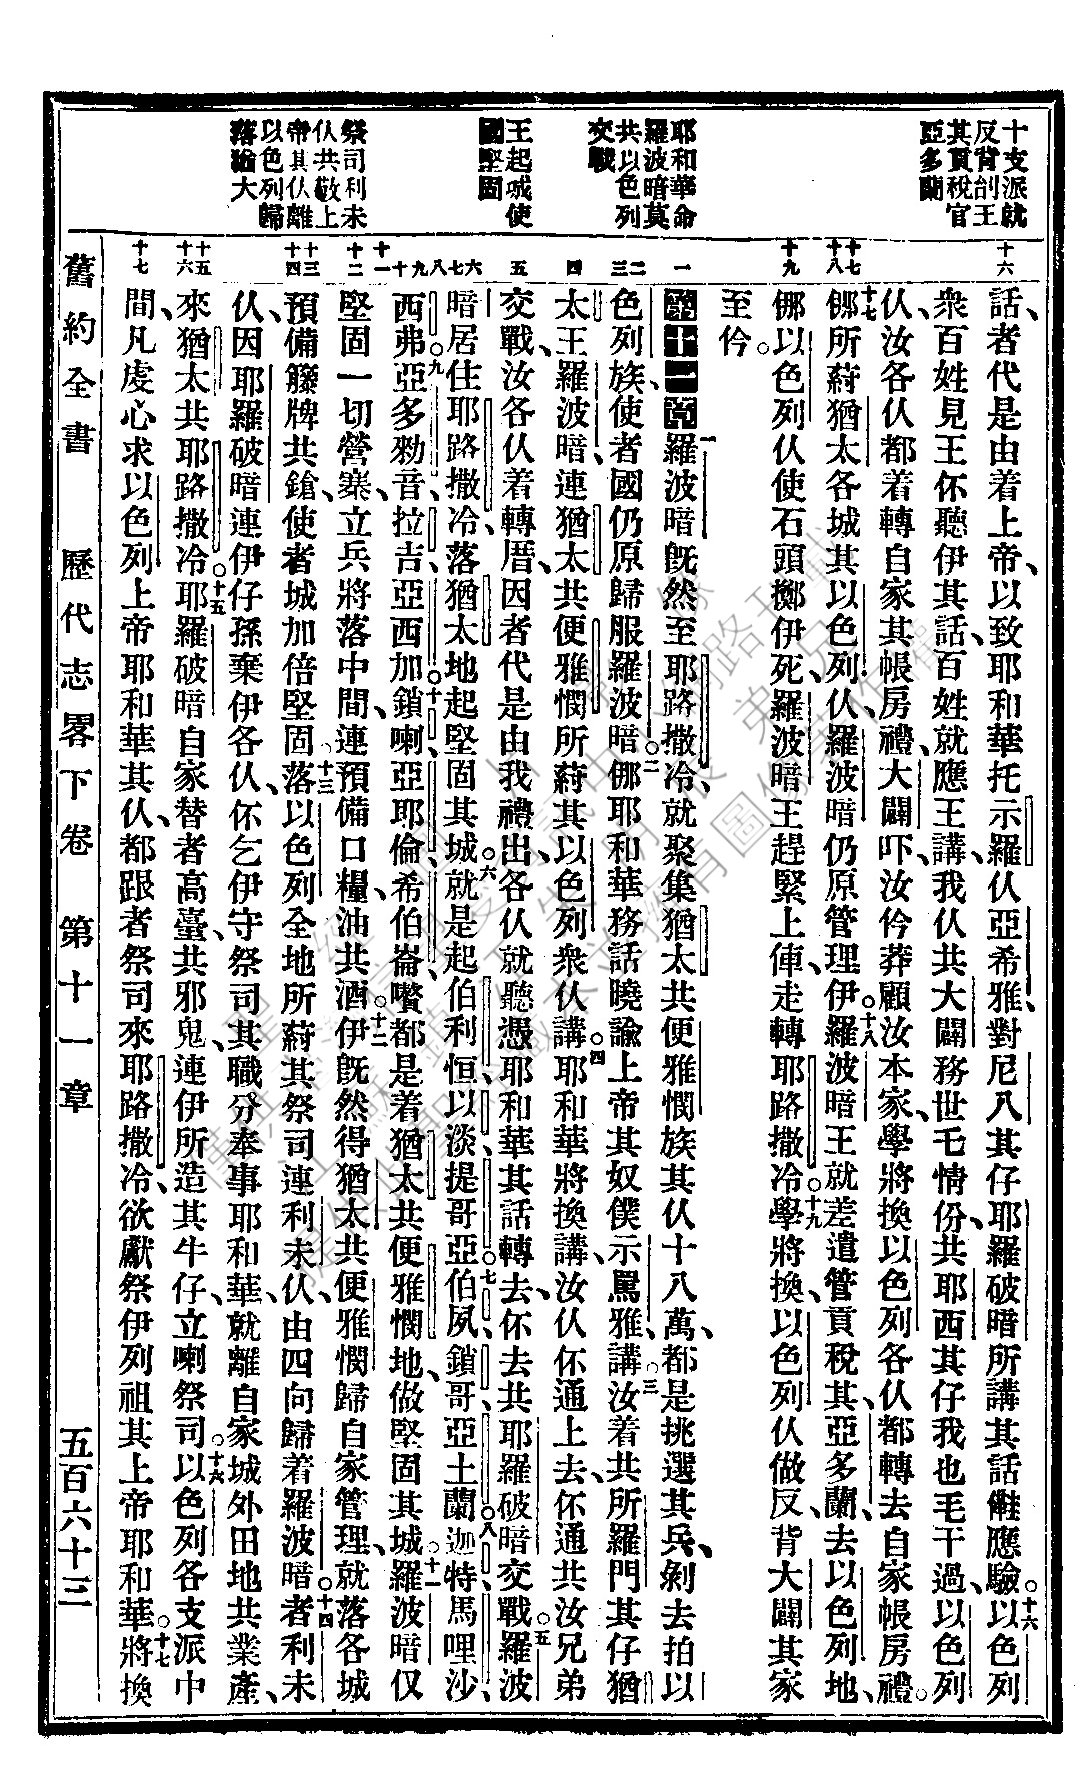 十支派就
反背剖王
其貢稅官
亞多蘭
耶和華命
羅波暗莫
共以色列
交戰
王起城使
國堅固
祭司利未
仫共敬上
帝其仫離
以色列歸
落猶大
十六
十七
十八
十九
一
二
三
四
五
六
七
八
九
十
十一
十二
十三
十四
十五
十六
十七
話者代是由着上帝、以致耶和華托示羅仫亞希雅、對尼八其仔耶羅破暗所講其話儺應驗。十六以色列
衆百姓見王伓聽伊其話、百姓就應王講、我仫共大闢務世乇情份、共耶西其仔我也毛干過、以色列
仫、汝各仫都着轉自家其帳房禮、大闢吓、汝仱莽顧汝本家、學將換以色列各仫都轉去自家帳房禮。
十七倻所蔚猶太各城其以色列仫、羅波暗仍原管理伊。十八羅波暗王就差遣管貢稅其亞多蘭、去以色列地、
倻以色列仫使石頭擲伊死、羅波暗王趕緊上俥、走轉耶路撒冷。十九學將換、以色列仫做反、背大闢其家
至仱。
第十一章一羅波暗旣然至耶路撒冷、就聚集猶太共便雅憫族其仫十八萬、都是挑選其兵、剁去拍以
色列族、使者國仍原歸服羅波暗。二倻耶和華務話曉諭上帝其奴僕示罵雅、講、三汝着共所羅門其仔猶
太王羅波暗、連猶太共便雅憫所蔚其以色列衆仫講、四耶和華將換講、汝仫伓通上去、伓通共汝兄弟
交戰、汝各仫着轉厝、因者代是由我禮出、各仫就聽憑耶和華其話轉去、伓去共耶羅破暗交戰。五羅波
暗居住耶路撒冷、落猶太地起堅固其城。六就是起伯利恒、以淡、提哥亞、七伯夙、鎖哥、亞土蘭、八迦特、馬哩沙、
西弗、九亞多勑音、拉吉、亞西加、十鎖喇、亞耶倫、希伯崙、嚽都是着猶太共便雅憫地、做堅固其城。十一羅波暗仅
堅固一切營寨、立兵將落中間、連預備口糧油共酒。十二伊旣然得猶太共便雅憫歸自家管理、就落各城
預備籐牌共鎗、使者城加倍堅固。十三落以色列全地所蔚其祭司連利未仫、由四向歸着羅波暗。十四者利未
仫、因耶羅破暗連伊仔孫棄伊各仫、伓乞伊守祭司其職分奉事耶和華、就離自家城外田地共業產、
來猶太共耶路撒冷。十五耶羅破暗自家替者高臺、共邪鬼、連伊所造其牛仔、立喇祭司。十六以色列各支派中
間、凡虔心求以色列上帝耶和華其仫、都跟者祭司來耶路撒冷、欲獻祭伊列祖其上帝耶和華。十七將換
舊約全書 歷代志畧下卷 第十一章 五百六十三